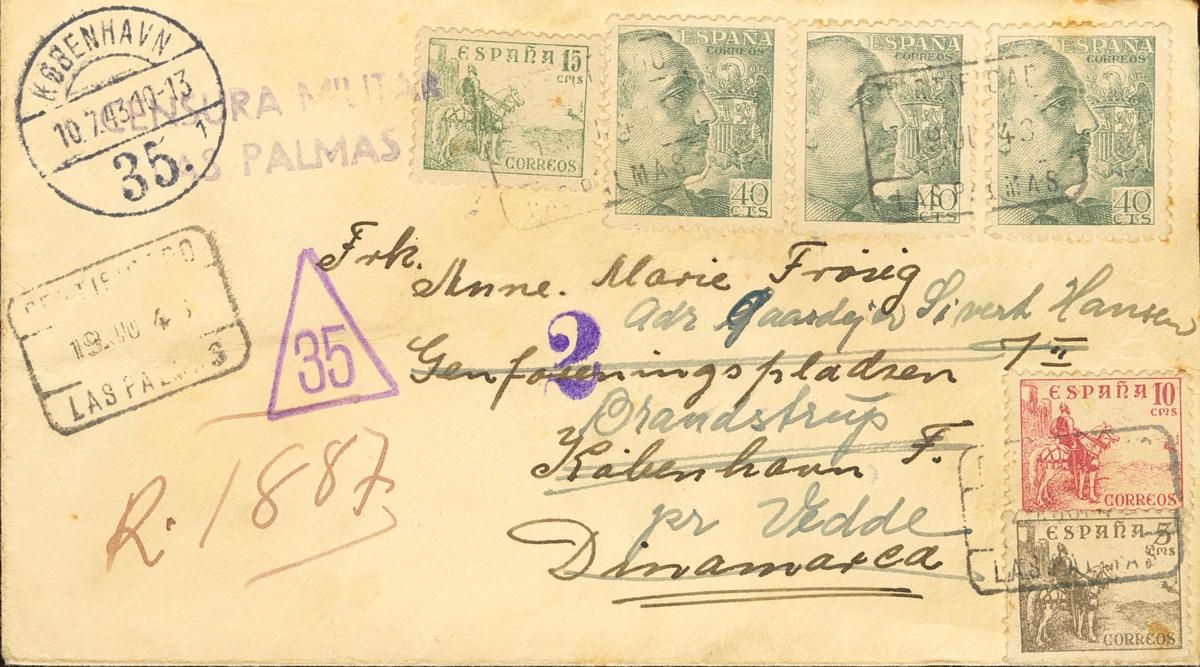 KØBENHAVN
10.7.43 10-13
35.
1
CENSURA MILITAR
LAS PALMAS
ESPAÑA 15
CMS
CORREOS
ESPAÑA
CORREOS
40
CTS
ESPAÑA
CORREOS
40
CTS
ESPAÑA
CORREOS
40
CTS
LAS PALMAS
19 JU 43
LAS PALMAS
19. JU 43
LAS PALMAS
35
2
Frk.
Anne. Marie Frösig
Adr Gaardejer Sivert Hansen
Genforeningspladsen 7 II
Brandstrup
København F.
pr Vedde
Dinamarca
R. 1887
ESPAÑA 10
CMS
CORREOS
ESPAÑA 5
CMS
LAS PALMAS
CORREOS